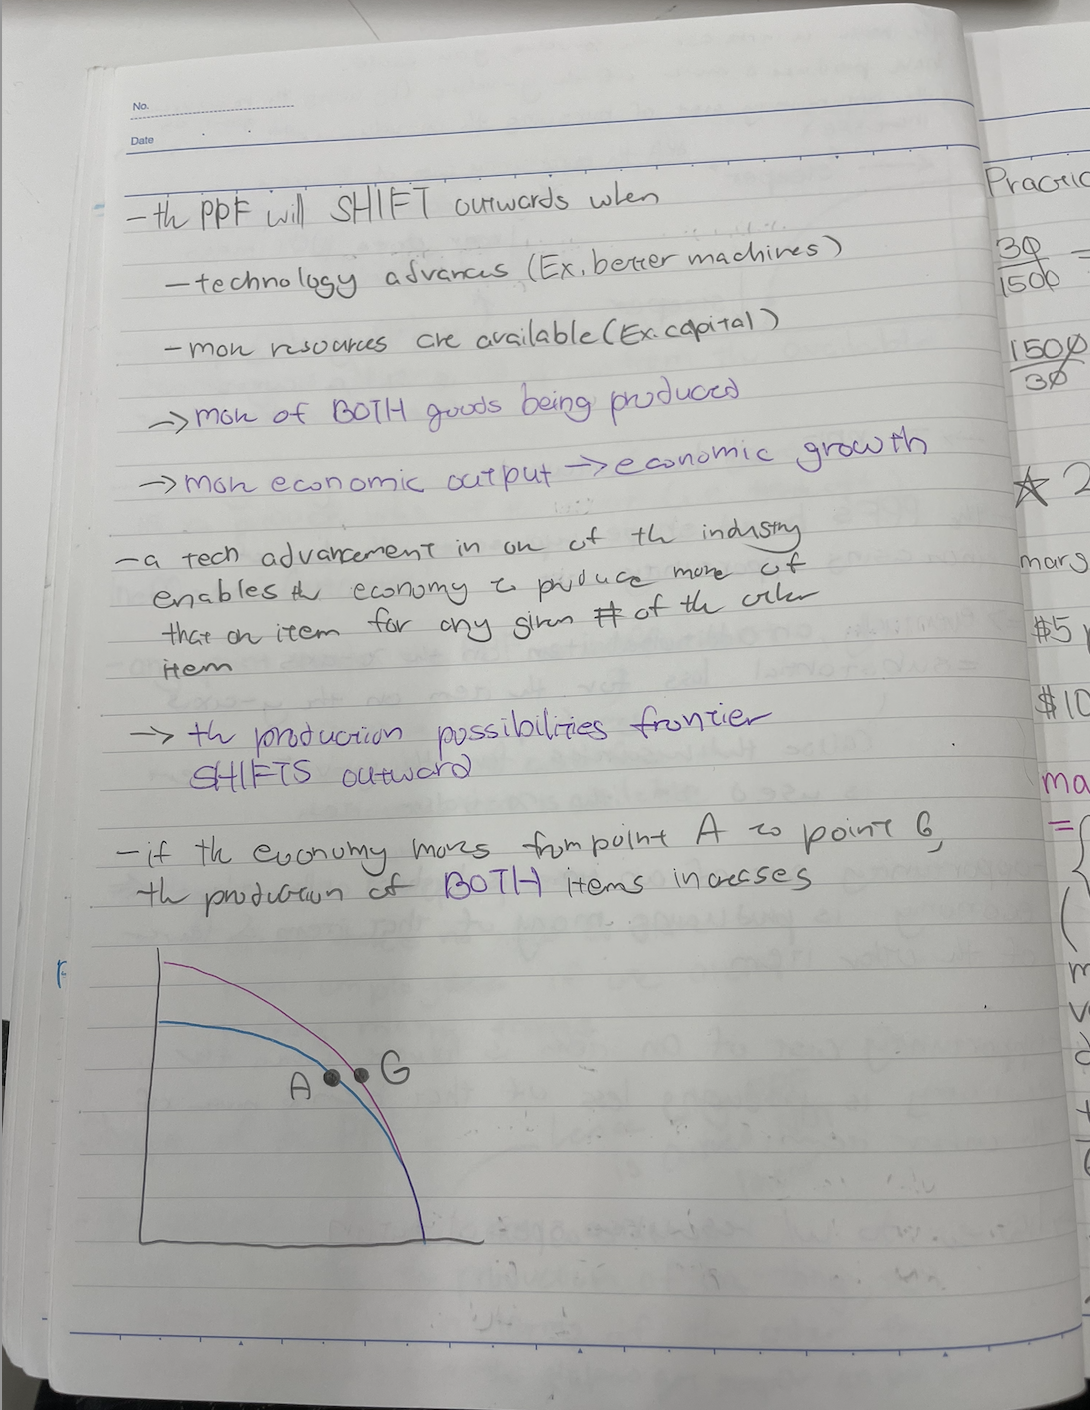 No.
Date
- th PPF will SHIFT outwards when
- technology advances (Ex. better machines)
- more resources are available (Ex. capital)
-> more of BOTH goods being produced
-> more economic output -> economic growth
- a tech advancement in one of th industry
enables th economy to produce more of
that one item for any given # of the other
item
-> th production possibilities frontier
SHIFTS outward
- if th economy moves from point A to point G,
th production of BOTH items increases
A G
Practic
30
1500
=
1500
30
☆ 2
mars
$5
$10
ma
= {
(